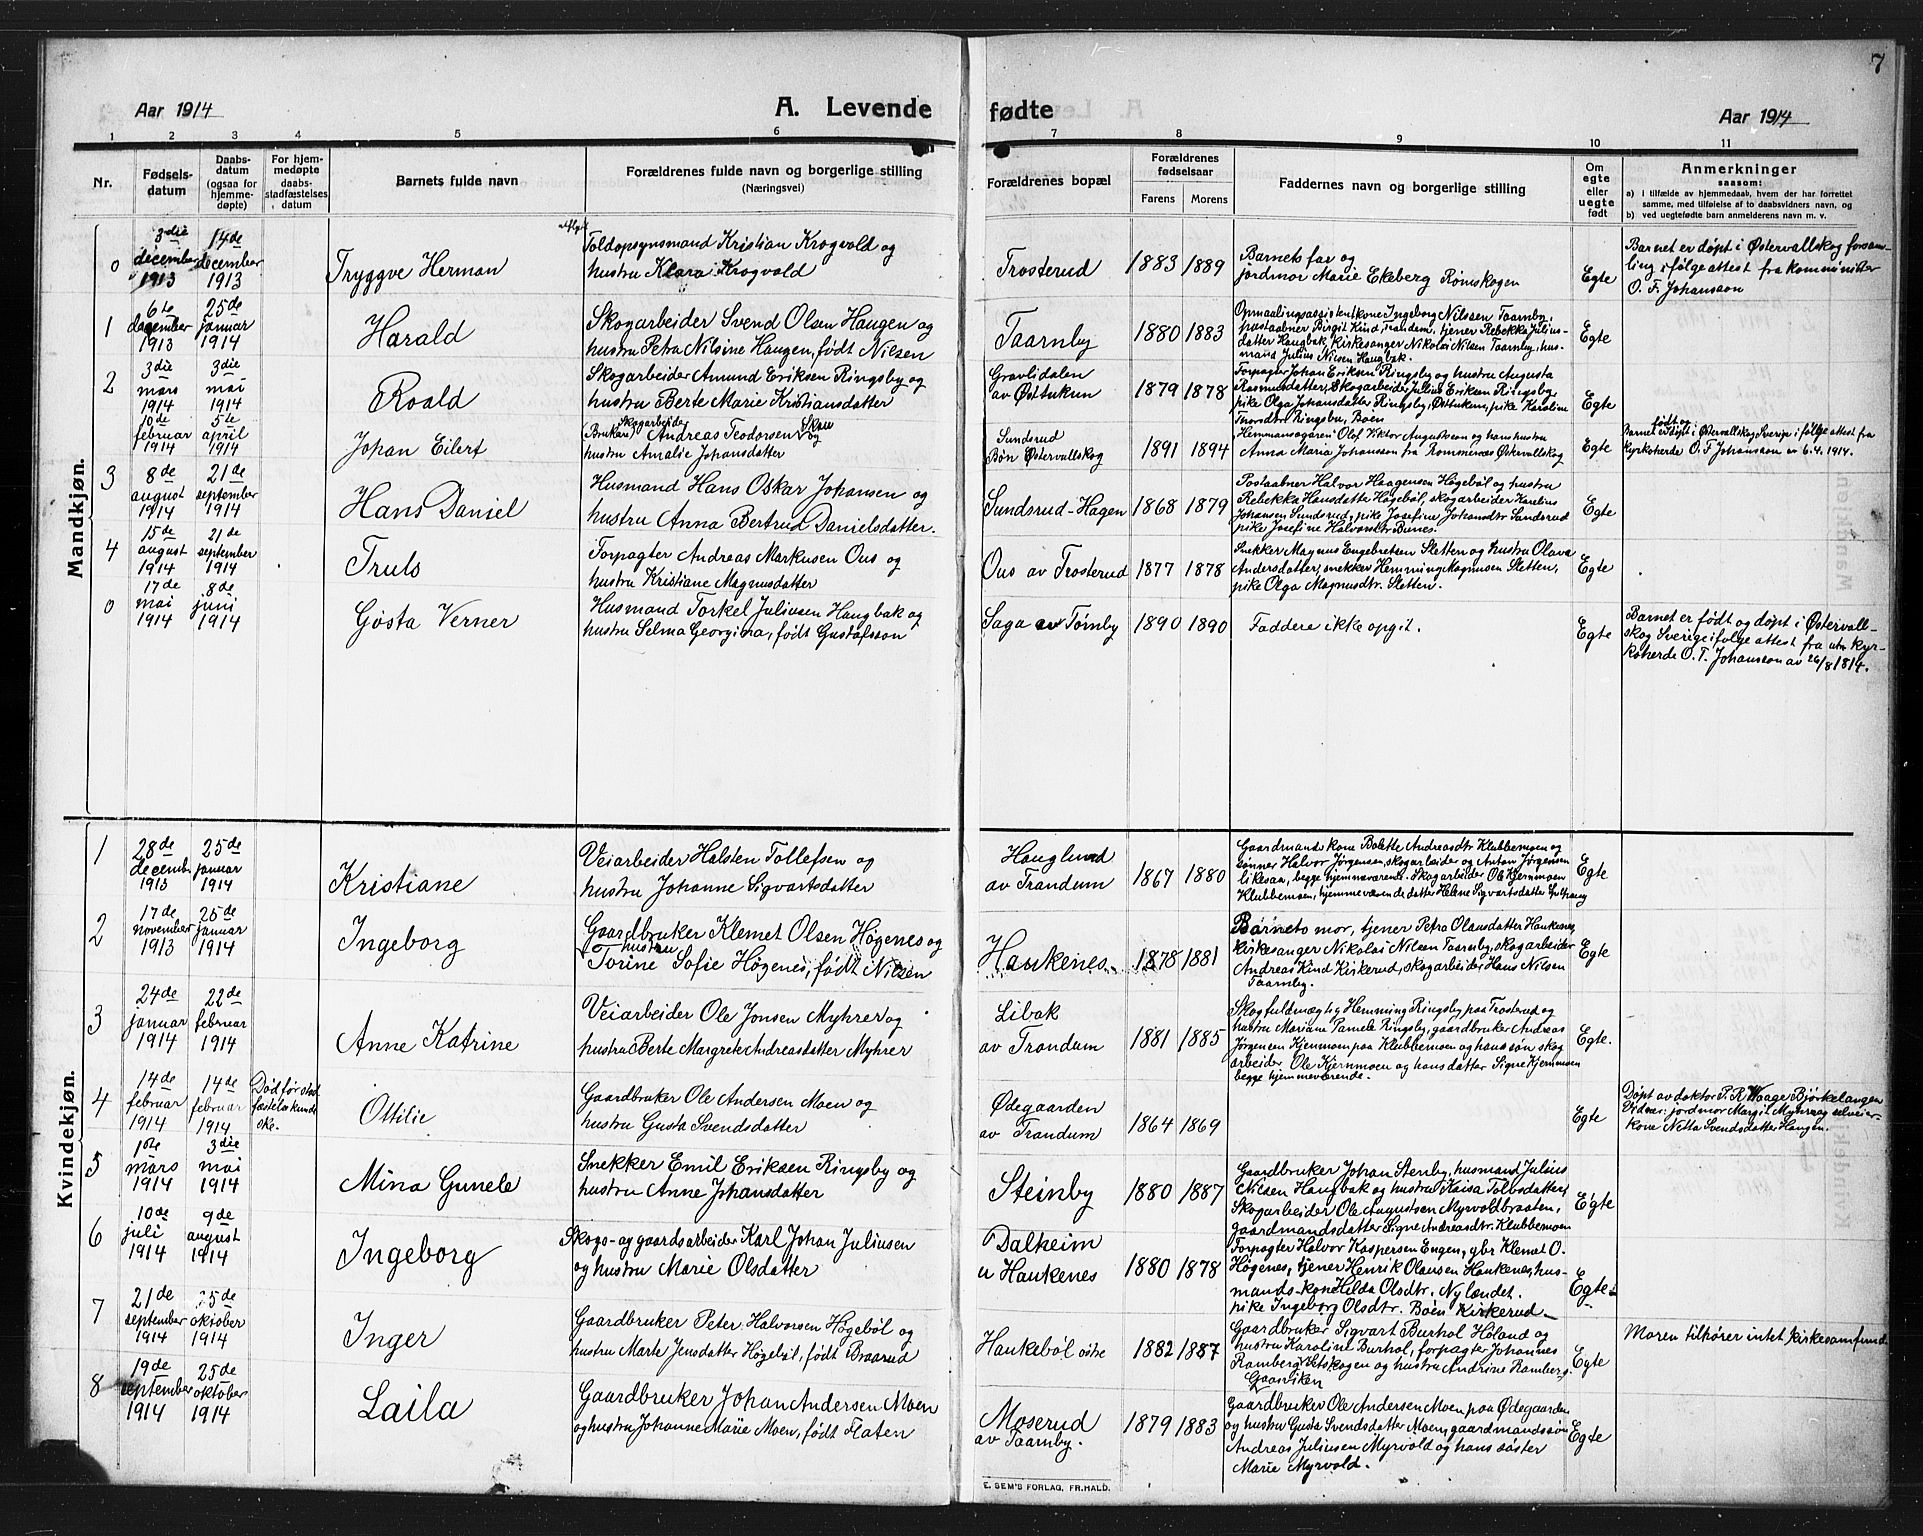 7
Aar 1914
A. Levende
fødte
Aar 1914
1 2 3 4 5 6 7 8 9 10 11
Nr.
Fødsels-
datum
Daabs-
datum
(ogsaa for
hjemme-
døpte)
For hjem-
medøpte
daabs-
stadfæstelses
datum
Barnets fulde navn
Forældrenes fulde navn og borgerlige stilling
(Næringsvei)
Forældrenes bopæl
Forældrenes
fødselsaar
Farens
Morens
Faddernes navn og borgerlige stilling
Om
egte
eller
uegte
født
Anmerkninger
saasom:
a) i tilfælde av hjemmedaab, hvem der har forrettet
samme, med tilføielse af to daabsvidners navn, og
b) ved uegtefødte barn anmelderens navn m. v.
Mandkjøn.
0
3die
december
1913
14de
december
1913
Tryggve Herman
Toldopsynsmand Kristian Krogvold og
hustru Klara Krogvold
Trosterud
1883 1889
Barnets far og
jordmor Marie Ekeberg Rømskogen
Egte
Barnet er døpt i Østervallskog forsam-
ling ifølge attest fra komminister
O. F. Johansson
1
6te
december
1913
25de
januar
1914
Harald
Skogarbeider Svend Olsen Haugen og
hustru Petra Nilsine Haugen, født Nilsen
Taarnby
1880 1883
Opmaalingsassistentkone Ingeborg Nilssen Taarnby,
postaabner Birgit Kind, Trandem, tjener Rebekka Julius-
datter Haugbak, kirkesanger Nikolai Nilsen Taarnby, hus-
mand Julius Nilsen Haugbak.
Egte
2
3die
mars
1914
3die
mai
1914
Roald
Skogarbeider Amund Eriksen Ringsby og
hustru Berte Marie Kristiansdatter
Gravlidalen
av Østtukun
1879 1878
Forpagter Johan Eriksen Ringsby og hustru Augusta
Rasmusdatter, Skogarbeider Julius Eriksen Ringsby,
pike Olga Johansdatter Ringsby, Østtukun, pike Karoline
Trondsdtr Ringsby, Bøen
Egte
10de
februar
1914
5te
april
1914
Johan Eilert
Skogarbeider
Andreas Teodorsen og
hustru Amalie Johansdatter
Sundsrud
Bøn Østervallskog
1891 1894
Hemmansägaren Olof Viktor Augustsson og hans hustru
Anna Maria Johansson fra Rommenæs Østervallskog
Egte
født og
Barnet er døpt i Østervallskog Sverige ifølge attest fra
kyrkoherde O. F. Johansson av 6.4.1914.
3
8de
august
1914
21de
september
1914
Hans Daniel
Husmand Hans Oskar Johansen og
hustru Anna Bertrud Danielsdatter.
Sundsrud-Hagen
1868 1879
Postaabner Halvor Haagensen Høgebøl og hustru
Rebekka Hansdatter Høgebøl, skogarbeider Karelius
Johansen Sundsrud, pike Josefine Johansdtr Sundsrud
pike Josefine Halvorsdtr Bunes.
Egte
4
15de
august
1914
21de
september
1914
Truls
Forpagter Andreas Markusen Ous og
hustru Kristiane Magnusdatter
Ous av Trosterud
1877 1878
Snekker Magnus Engebretsen Sletten og hustru Olava
Andersdatter, snekker Hemning Magnusen Sletten,
pike Olga Magnusdtr. Sletten.
Egte
0
17de
mai
1914
8de
juni
1914
Gösta Verner
Husmand Torkel Juliusen Haugbak og
hustru Selma Georgina, født Gustafsson
Saga av Tørnby
1890 1890
Faddere ikke opgit.
Egte
Barnet er født og døpt i Østervall-
skog Sverige ifølge attest fra kyr-
koherde O. F. Johansson av 26/8 1814.
Kvindekjøn.
1
28de
decemb.
1913
25de
januar
1914
Kristiane
Veiarbeider Halsten Tollefsen og
hustru Johanne Sigvartsdatter
Hauglund
av Trandum
1867 1880
Gaardmandskone Bolette Andreasdtr Klubbemoen og
sønner Halvor Jørgensen, skogarbeider og Anton Jørgensen
likesaa, begge hjemmeværende. Skogarbeider Ole Kjernmoen
Klubbemoen, hjemmeværende datter Helene Sigvartsdatter
Egte
2
17de
november
1913
25de
januar
1914
Ingeborg
Gaardbruker Klemet Olsen Høgenes og
hustru
Torine Sofie Høgenes, født Nilsen
Haukenes
1878 1881
Barnets mor, tjener Petra Olausdatter Haukenes,
kirkesanger Nikolai Nilsen Taarnby, skogarbeider
Andreas Kind Kirkerud, skogarbeider Hans Nilsen
Taarnby.
Egte
3
24de
januar
1914
22de
februar
1914
Anne Katrine
Veiarbeider Ole Jonsen Myhrer og
hustru Berte Margrete Andreasdatter Myhrer
Libak
av Trandum
1881 1885
Skogfuldmægtig Hemning Ringsby paa Trosterud og
hustru Mariane Pamele Ringsby, gaardbruker Andreas
Jørgensen Kjernmoen paa Klubbemoen og hans søn skog
arbeider Ole Kjernmoen og hans datter Signe Kjernmoen
begge hjemmeværende.
Egte.
4
14de
februar
1914
14de
februar
1914
Død før stad
fæstelse kunde
ske.
Ottilie
Gaardbruker Ole Andersen Moen og
hustru Gusta Svendsdatter
Ødegaarden
av Trandum
1864 1869
Egte
Døpt av doktor P. R. Waage Bjørkelangen
Vidner: jordmor Margit Myhrer og selveier-
kone Netta Svendsdatter Haugen.
5
1ste
mars
1914
3die
mai
1914
Mina Gunele
Snekker Emil Eriksen Ringsby og
hustru Anne Johansdatter
Steinby
1880 1887
Gaardbruker Johan Stenby, husmand Julius
Nilsen Haugbak og hustru Kaisa Tolvsdatter,
Skogarbeider Ole Augustsen Myrvoldbraaten,
gaardmandsdatter Signe Andreasdtr. Klubbemoen
Egte
6
10de
juli
1914
9de
august
1914
Ingeborg
Skogs- og gaardsarbeider Karl Johan Juliusen
og hustru Marie Olsdatter
Dalheim
u Haukenes
1880 1878
Forpagter Halvor Kaspersen Engen, gbr Klemet O.
Høgenes, tjener Henrik Olausen Haukenes, hus-
mandskone Hilda Olsdtr. Nylændet.
pike Ingeborg Olsdtr. Bøen Kirkerud
Egte
7
21de
september
1914
25de
oktober
1914
Inger
Gaardbruker Peter Halvorsen Høgebøl og
hustru Marte Jensdatter Høgebøl, født Braarud
Haukebøl østre
1882 1887
Gaardbruker Sigvart Burhol Høland og
hustru Karoline Burhol, forpagter Johannes
Ramberg Setskogen og hustru Andrine Ramberg.
Gaasviken
Egte
Moren tilhører intet kirkesamfund
8
19de
september
1914
25de
oktober
1914
Laila
Gaardbruker Johan Andersen Moen
og hustru Johanne Marie Moen, født Flaten
Moserud
av Taarnby.
1879 1883
Gaardbruker Ole Andersen Moen paa Ødegaarden
og hustru Gusta Svendsdatter Moen, gaardmandssøn
Andreas Juliusen Myrvold og hans søster
Marie Myrvold.
Egte
E. SEM'S FORLAG, FR.HALD.